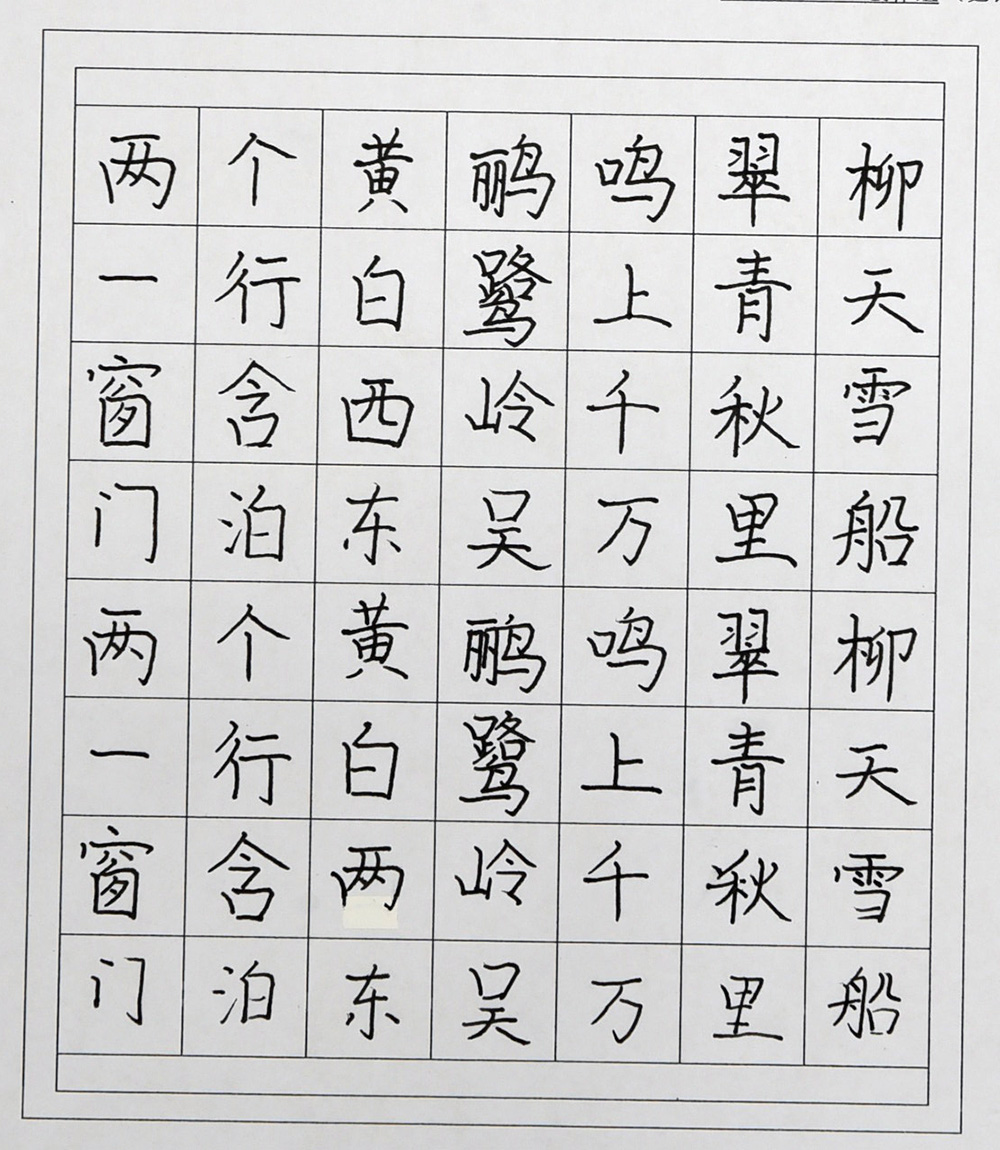 两个黄鹂鸣翠柳
一行白鹭上青天
窗含西岭千秋雪
门泊东吴万里船
两个黄鹂鸣翠柳
一行白鹭上青天
窗含两岭千秋雪
门泊东吴万里船